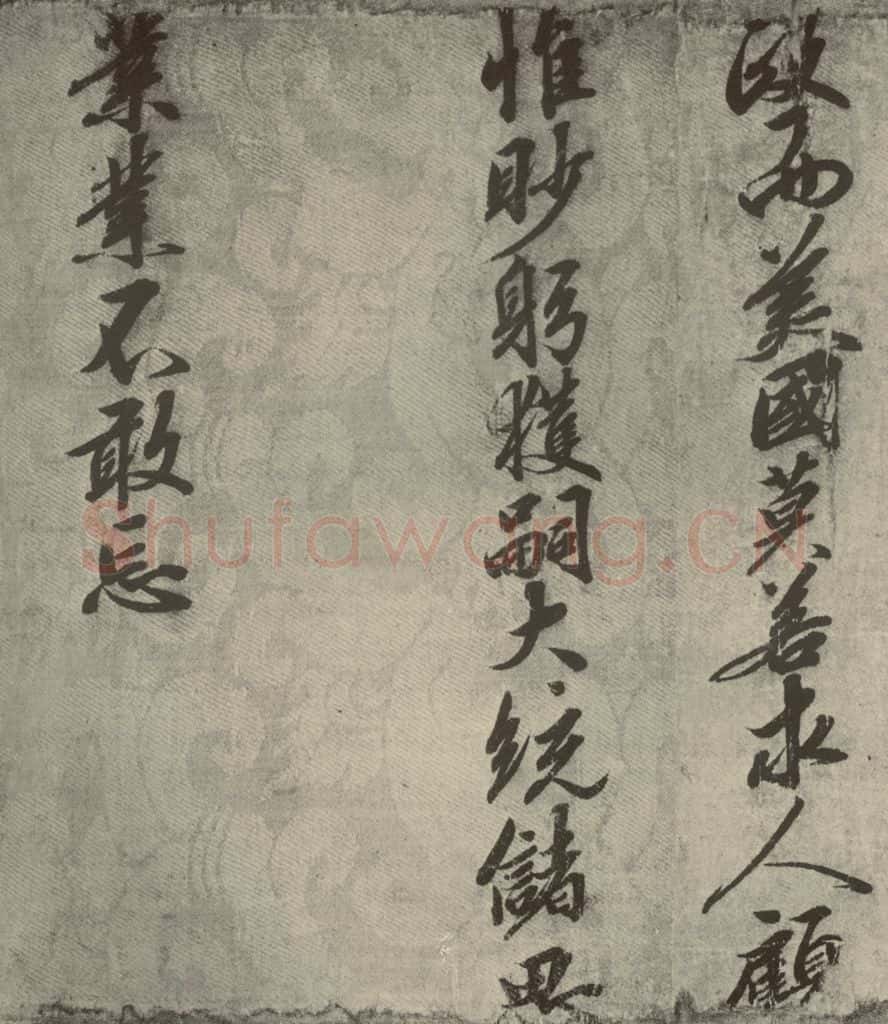 政而美國莫若求人顧
惟眇躬獲嗣大統儲思
業業不敢忘
Shufawang.CN